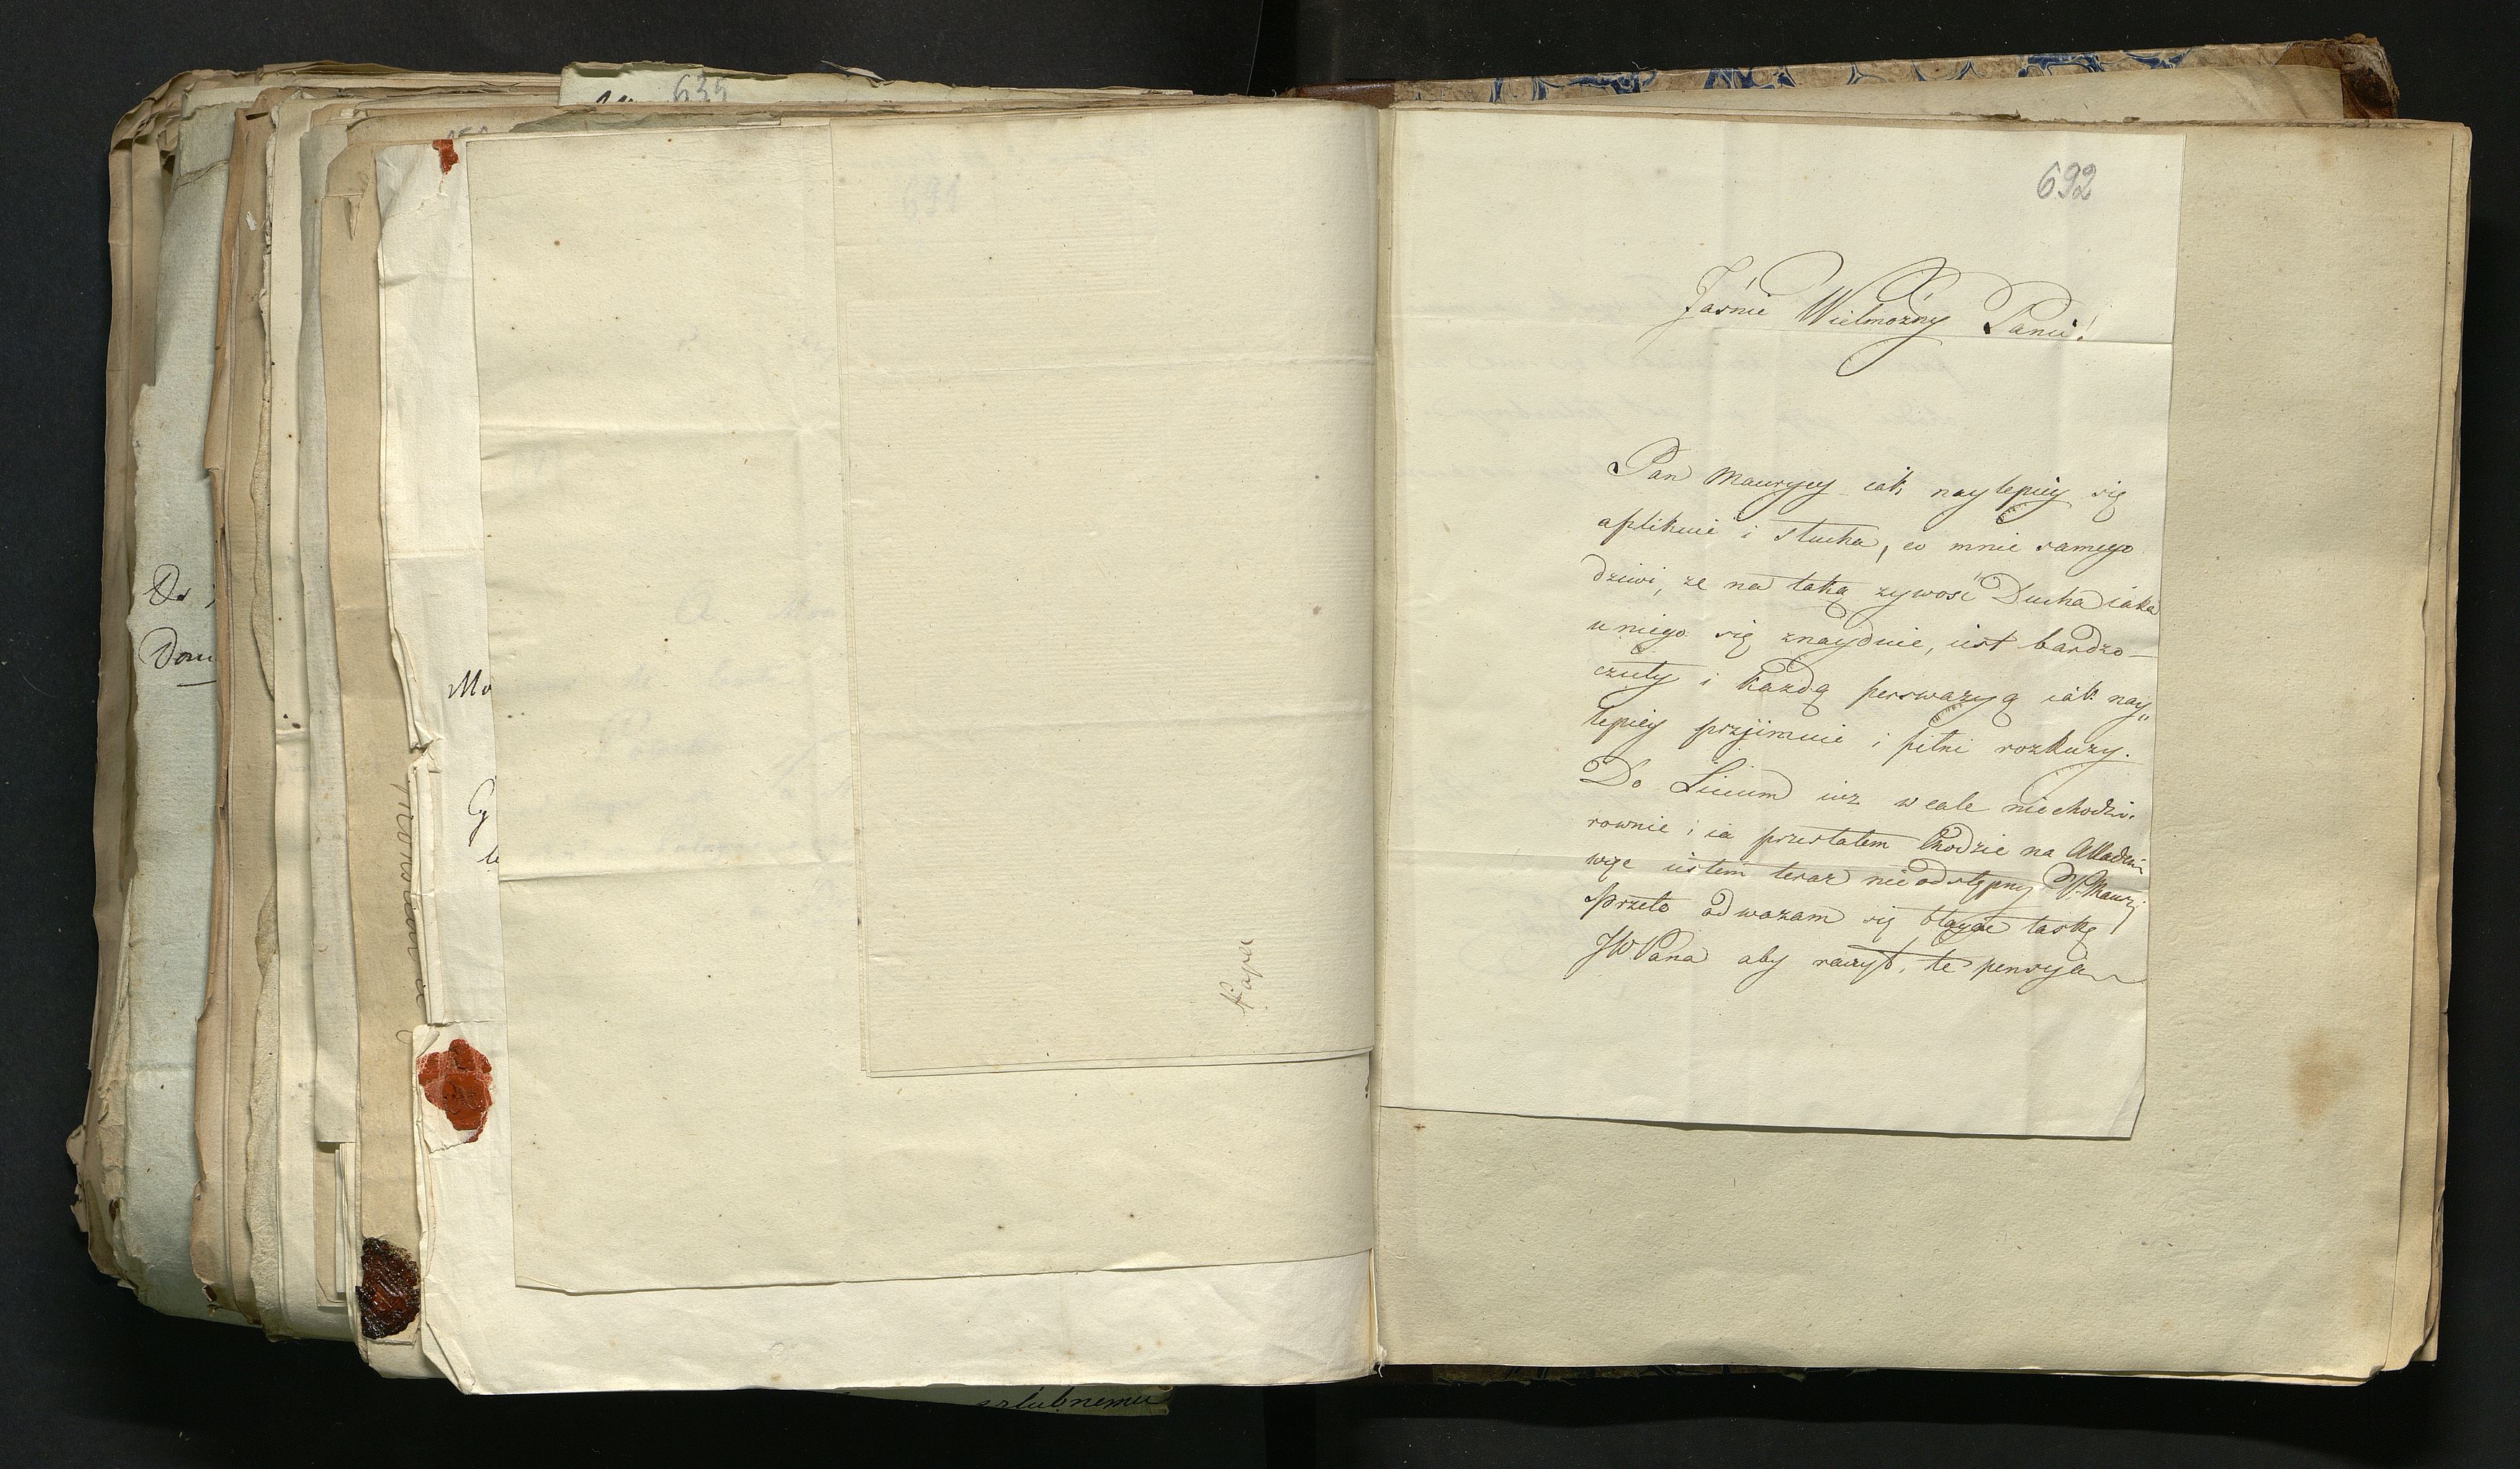 635
Do
Dom
Mo
691
692
Jaśnie Wielmożny Panie!
Pan Maurycy iak naylepiey się
aplikuie i słucha, co mnie samego
dziwi, ze na taką zywość Ducha iaka
u niego się znayduie, iest bardzo
czuły i każdą perswazyą iak nay„
lepiey przyimuie i pełni rozkazy.
Do Liceum iuz wcale niechodzi.
rownie i ia przestałem chodzic na Akademią
więc iestem teraz nieodstępny P. Maurj
przeto odwazam się błagać łaskę
JW Pana aby raczył, te pensyą